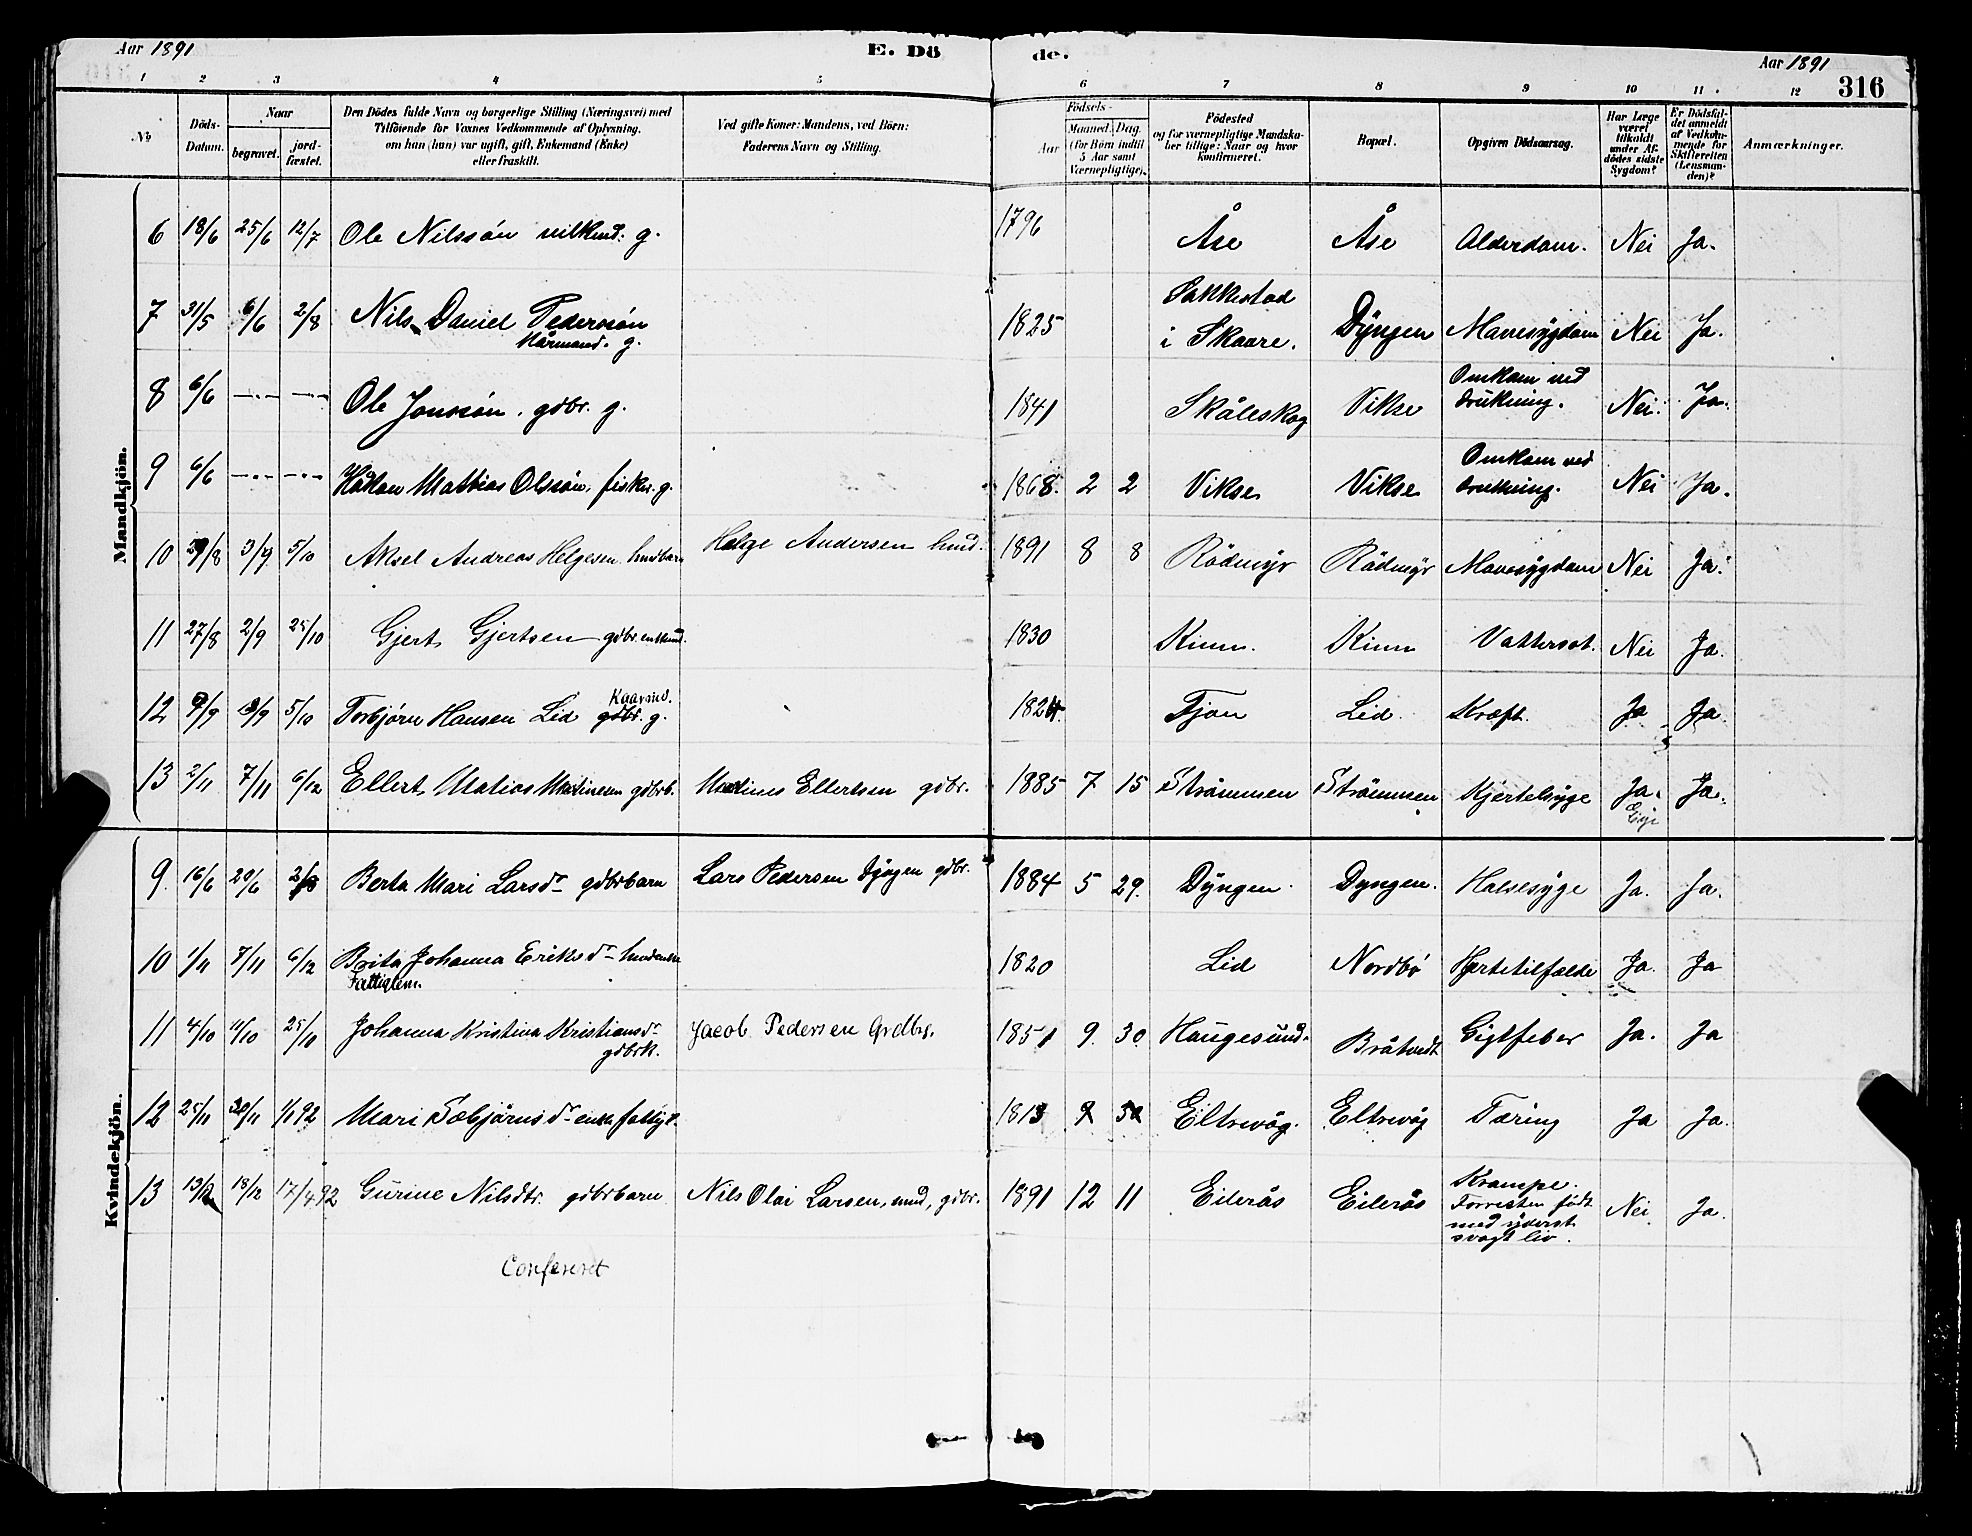 Aar 1891
E. Dö
de.
Aar 1891
316
1 2 3 4 5 6 7 8 9 10 11 12
No
Döds-Datum.
Naar
begravet.
jordfæstet.
Den Dödes fulde Navn og borgerlige Stilling (Næringsvei) med
Tilföiende for Voxnes Vedkommende af Oplysning,
om han (hun) var ugift, gift, Enkemand (Enke)
eller fraskilt.
Ved gifte Koner: Mandens, ved Börn:
Faderens Navn og Stilling.
Födsels-
Aar
Maaned. Dag.
(for Börn indtil
5 Aar samt
Værnepligtige).
Födested
og for værnepligtige Mandskaber tillige: Naar og hvor
konfirmeret.
Bopæl.
Opgiven Dödsaarsag.
Har Læge
været
tilkaldt
under Afdödes sidste
Sygdom?
Er Dödsfaldet anmeldt
af Vedkommende for
Skifteretten
(Lensmanden)?
Anmærkninger.
Mandkjön.
6 18/6 25/6 12/7 Ole Nilssön g. 1796 Åse Åse Alderdom. Nei Ja.
7 31/5 6/6 2/8 Nils Daniel Pederssön Kårmand. g. 1825 Sakkestad i Skaare. Dyngen Mavesygdom Nei Ja.
8 6/6 -- -- Ole Jonssön. gdbr. g. 1841 Skåleskog Vikse Omkom ved drukning. Nei. Ja.
9 6/6 -- -- Håkon Mathias Olssön, fisker. g. 1868. 2 2 Vikse Vikse Omkom ved drukning. Nei Ja.
10 29/8 3/9 5/10 Aksel Andreas Helgesen husbarn Helge Andersen husd. 1891 8 8 Rödmyr Rödmyr Mavesygdom Nei Ja.
11 27/8 2/9 25/10 Gjert Gjertsen gdbr. enkmd. 1830 Kinn. Kinn Vattersot. Nei Ja.
12 9/9 5/10 Torbjörn Hansen Lid Kaarmd. gdbr. g. 1824. Tjon Lid. Kræft. Ja Ja.
13 2/11 7/11 6/12 Ellert Matias Martinesen gdbrb. Martines Ellertsen gdbr. 1885 7 15 Strömmen Strömmen Kjertelsyge Ja. Ja.
Kvindekjön.
9. 16/6 20/6 2/8 Berta Mari Larsdr gdbrbarn Lars Pedersen Dyngen gdbr. 1884 5 29. Dyngen. Dyngen. Halssyge Ja. Ja.
10 1/11 7/11 6/12 Brita Johanna Eriksdr Fattiglem. 1820 Lid Nordbö Hjertetilfælde Ja. Ja
11 4/10 11/10 25/10 Johanna Kristina Kristiansdr gdbrk. Jacob Pedersen Grdbr. 1851 9. 30. Haugesund. Bråtvedt Gigtfeber Ja. Ja
12 25/11 30/11 1/1 92 Mari Torbjörnsdr enke fattigl. 1813 Eltrevåg. Eltrevåg Tæring Ja Ja.
13 13/12 18/12 17/4 92 Gurine Nilsdtr. gdbrbarn Nils Olai Larsen, gdbr. 1891 12 11 Eilerås Eilerås Krampe. Forresten födt med yderst svagt liv. Nei Ja.
Confereret